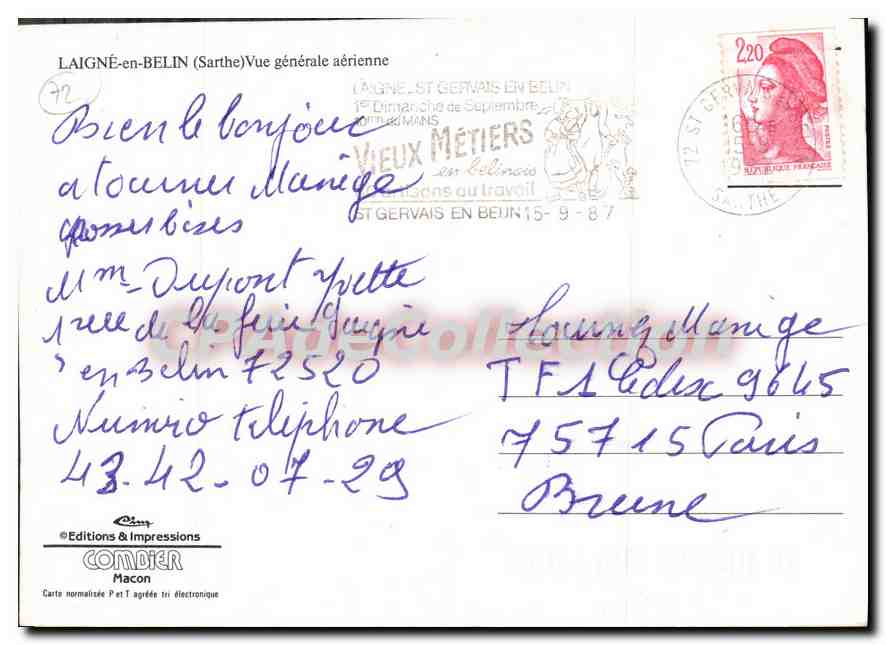 LAIGNÉ-en-BELIN (Sarthe) Vue générale aérienne
72
LAIGNE, ST GERVAIS EN BELIN
1er Dimanche de Septembre
10km du MANS
VIEUX MÉTIERS
en belinois
artisans au travail
ST GERVAIS EN BELIN 15-9-87
72 ST GERVAIS EN
SARTHE
2,20
POSTES
REPUBLIQUE FRANÇAISE
Bien le bonjour
a tourner Manège
grosses bises
Mme Dupont Yvette
1 rue de la
en Belin 72520
Numiro teliphone
43.42.07.29
Tournez Manige
TF1 Cedex 9645
75715 Paris
Brune
Cim
©Editions & Impressions
COMBIER
Macon
Carte normalisée P et T agréée tri électronique
CPAdeCollection